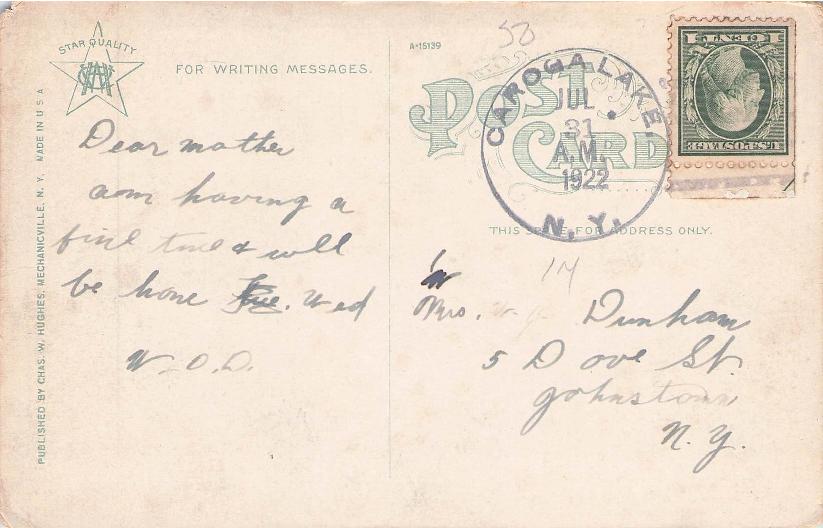 STAR QUALITY
FOR WRITING MESSAGES.
Dear mother
am having a
fine time & will
be home Tue. Wed
W. O. D.
PUBLISHED BY CHAS. W. HUGHES, MECHANICVILLE, N. Y. MADE IN U S A
A-15139
52
POST CARD
CAROGA LAKE.
JUL
31
A.M.
1922
N. Y.
U.S.POSTAGE
1 CENT 1
THIS SPACE FOR ADDRESS ONLY.
14
Mrs. Dunham
5 Dove St.
Johnstown
N. Y.